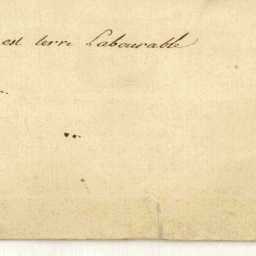 est terre Labourable